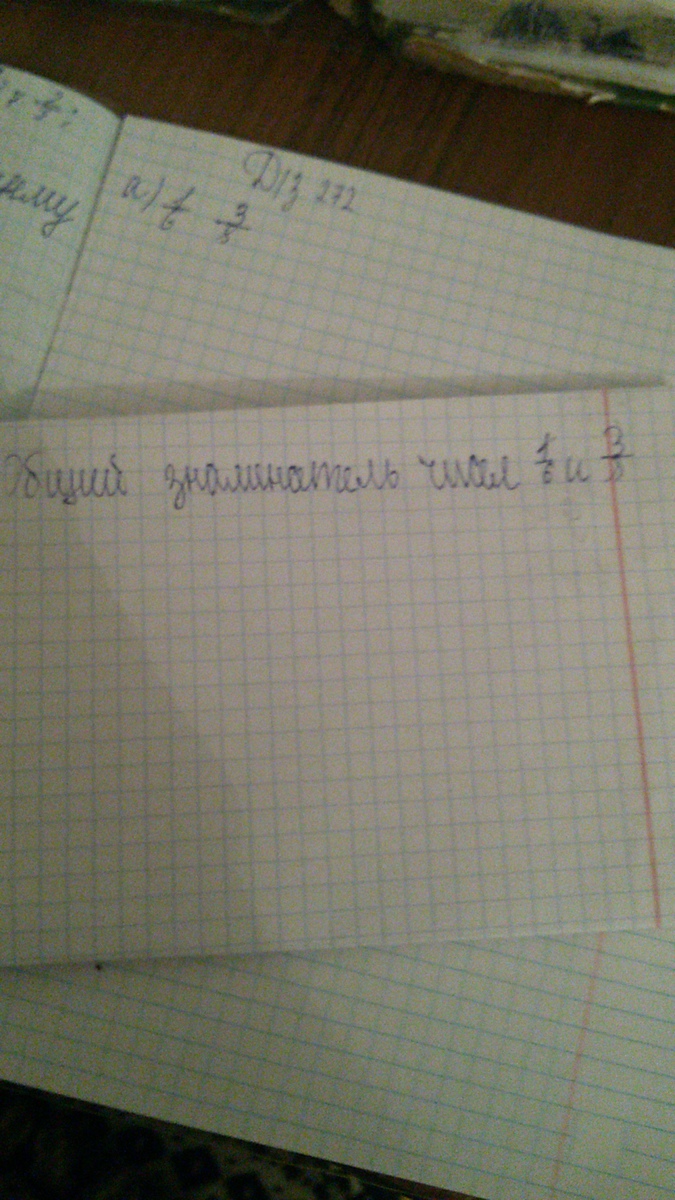 Д/з 272
а) 1/6 3/5
Общий знаминатель чисел 1/6 и 3/5